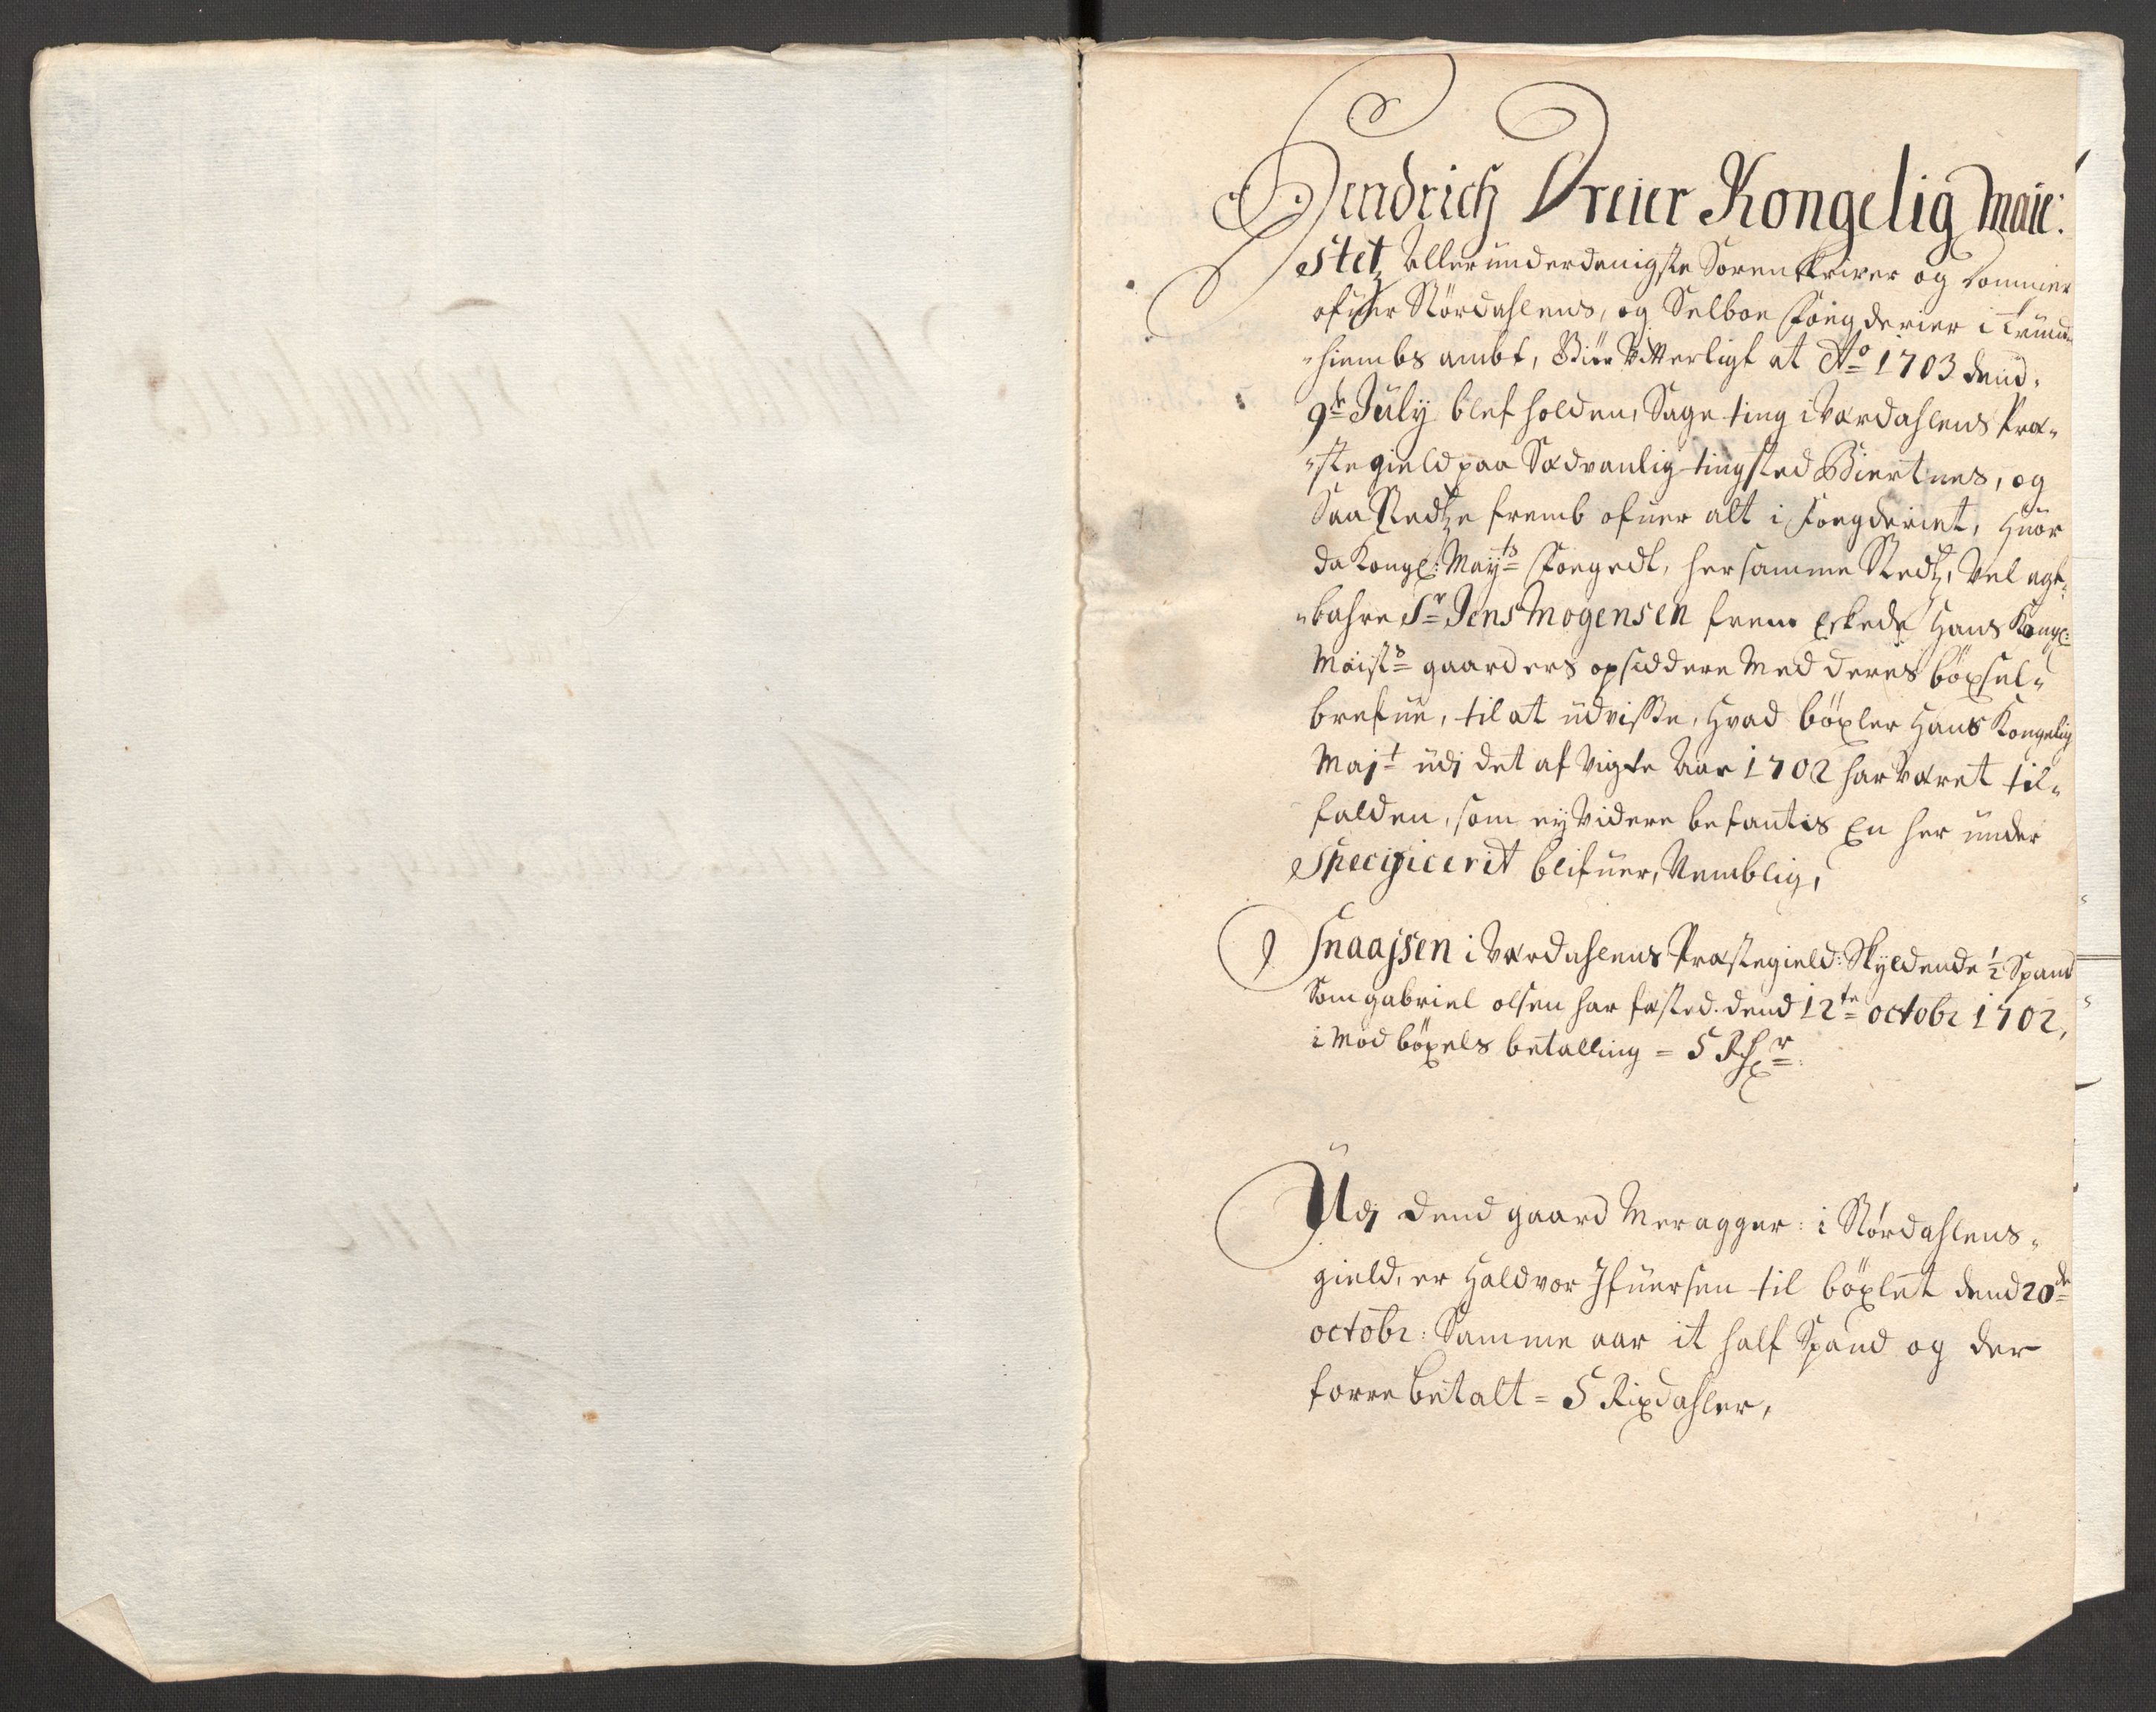 Hendrich Dreier Kongelig Maie:
stetz Allerunderdanigste Sorenskriver og Dommer
ofuer Stördahlens, og Selboe Fougderier i Trund
"hiembs ambt, Giör Vitterligt at Ao 1703 dend
9de July blef holden, Sage ting i Værdahlens Præ"
"stegield paa Sædvanlig tingsted Biertnes, og
Saa Stedtze fremb ofuer alt i Fougderiet, Huor
da Kongl: Mayts Fougedt, her samme Stedtz, Vel agt"
"bahre Sr Jens Mogensen frem Eskede Hans Kongl:
Maists gaarders opsiddere Med deres böxsel"
brefue, til at udvisse, Hvad böxler Hans Kongelig
Majt udj det afvigte Aar 1702 har Været til"
falden, som ey Videre befantis En her under
Specificerit blifuer, Nemblig,
1 Snaajsen i Værdahlens Præstegield: Skyldende 1/2 Spand
Som gabriel olsen har fæsted dend 12te octobr 1702,
i mod böxels betalling = 5 Rhr
Udj dend gaard Meragger: i Stördahlens"
gield, er Haldvor Ifuersen til böxlet dend 20de
octobr: Samme aar it half Spand og der
forre betalt = 5 Rixdahler,